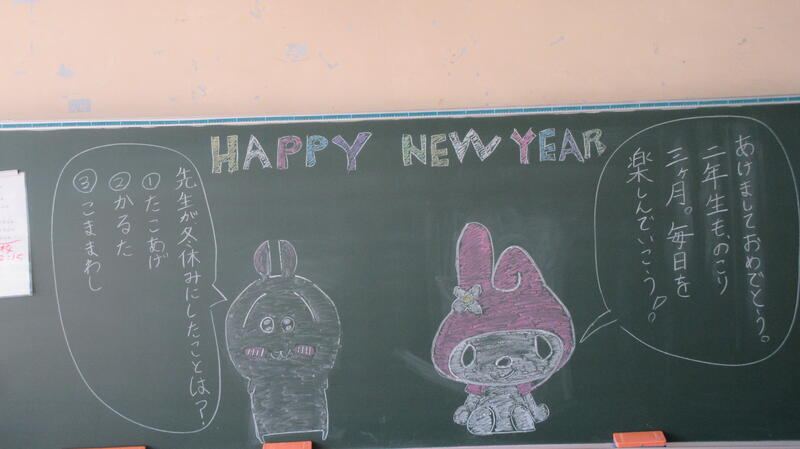 HAPPY NEW YEAR
あけましておめでとう。
二年生ものこり
三ヶ月。毎日を
楽しんでいこう!
先生が冬休みにしたことは?
①たこあげ
②かるた
③こままわし